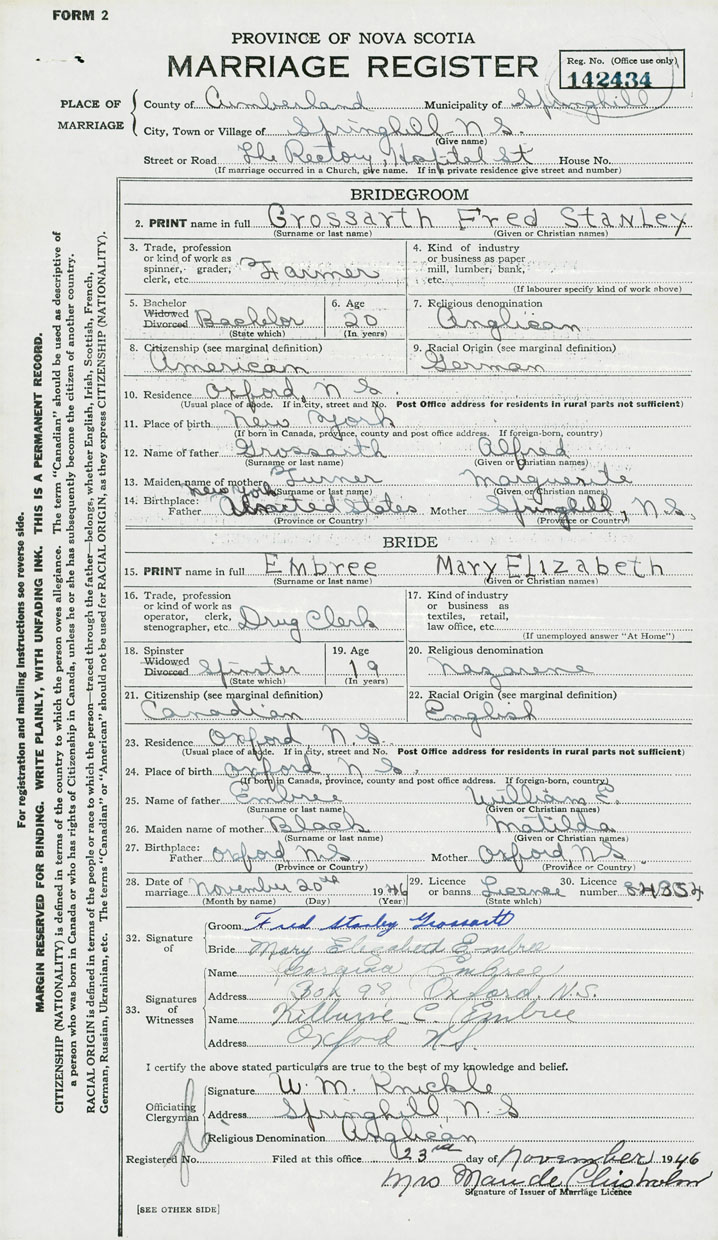 FORM 2
PROVINCE OF NOVA SCOTIA
MARRIAGE REGISTER
Reg. No. (Office use only)
142434
PLACE OF MARRIAGE
County of Cumberland Municipality of Springhill
City, Town or Village of Springhill N.S.
(Give name)
Street or Road The Rectory, Hospital St House No.
(If marriage occurred in a Church, give name. If in a private residence give street and number)
BRIDEGROOM
2. PRINT name in full Grossarth Fred Stanley
(Surname or last name) (Given or Christian names)
3. Trade, profession or kind of work as spinner, grader, clerk, etc. Farmer
4. Kind of industry or business as paper mill, lumber, bank, etc.
(If labourer specify kind of work above)
5. Bachelor Widowed Divorced Bachelor
(State which)
6. Age 20
(In years)
7. Religious denomination
Anglican
8. Citizenship (see marginal definition)
American
9. Racial Origin (see marginal definition)
German
10. Residence Oxford, N.S.
(Usual place of abode. If in city, street and No. Post Office address for residents in rural parts not sufficient)
11. Place of birth New York
(If born in Canada, province, county and post office address. If foreign-born, country)
12. Name of father Grossarth Alfred
(Surname or last name) (Given or Christian names)
13. Maiden name of mother Turner Marguerite
(Surname or last name) (Given or Christian names)
New York
14. Birthplace: Father United States Mother Springhill, N.S.
(Province or Country) (Province or Country)
BRIDE
15. PRINT name in full Embree Mary Elizabeth
(Surname or last name) (Given or Christian names)
16. Trade, profession or kind of work as operator, clerk, stenographer, etc. Drug Clerk
17. Kind of industry or business as textiles, retail, law office, etc.
(If unemployed answer "At Home")
18. Spinster Widowed Divorced Spinster
(State which)
19. Age 19
(In years)
20. Religious denomination
Nazarene
21. Citizenship (see marginal definition)
Canadian
22. Racial Origin (see marginal definition)
English
23. Residence Oxford N.S.
(Usual place of abode. If in city, street and No. Post Office address for residents in rural parts not sufficient)
24. Place of birth Oxford N S.
(If born in Canada, province, county and post office address. If foreign-born, country)
25. Name of father Embree William E.
(Surname or last name) (Given or Christian names)
26. Maiden name of mother Black Matilda
(Surname or last name) (Given or Christian names)
27. Birthplace: Father Oxford, N.S. Mother Oxford, N.S
(Province or Country) (Province or Country)
28. Date of marriage November 20th 1946
(Month by name) (Day) (Year)
29. Licence or banns License
(State which)
30. Licence number 84354
32. Signature of
Groom Fred Stanley Grossarth
Bride Mary Elizabeth Embree
33. Signatures of Witnesses
Name Georgina Embree
Address Box 98 Oxford, N.S.
Name C. Embree
Address Oxford N.S.
I certify the above stated particulars are true to the best of my knowledge and belief.
Officiating Clergyman
Signature W. M. Knickle
Address Springhill N.S
Religious Denomination Anglican
Registered No. Filed at this office 23rd day of November 1946
Mrs Maude Chisholm
Signature of Issuer of Marriage Licence
[SEE OTHER SIDE]
For registration and mailing instructions see reverse side.
MARGIN RESERVED FOR BINDING. WRITE PLAINLY, WITH UNFADING INK. THIS IS A PERMANENT RECORD.
CITIZENSHIP (NATIONALITY) is defined in terms of the country to which the person owes allegiance. The term "Canadian" should be used as descriptive of
a person who was born in Canada or who has rights of Citizenship in Canada, unless he or she has subsequently become the citizen of another country.
RACIAL ORIGIN is defined in terms of the people or race to which the person—traced through the father—belongs, whether English, Irish, Scottish, French,
German, Russian, Ukrainian, etc. The terms "Canadian" or "American" should not be used for RACIAL ORIGIN, as they express CITIZENSHIP (NATIONALITY).